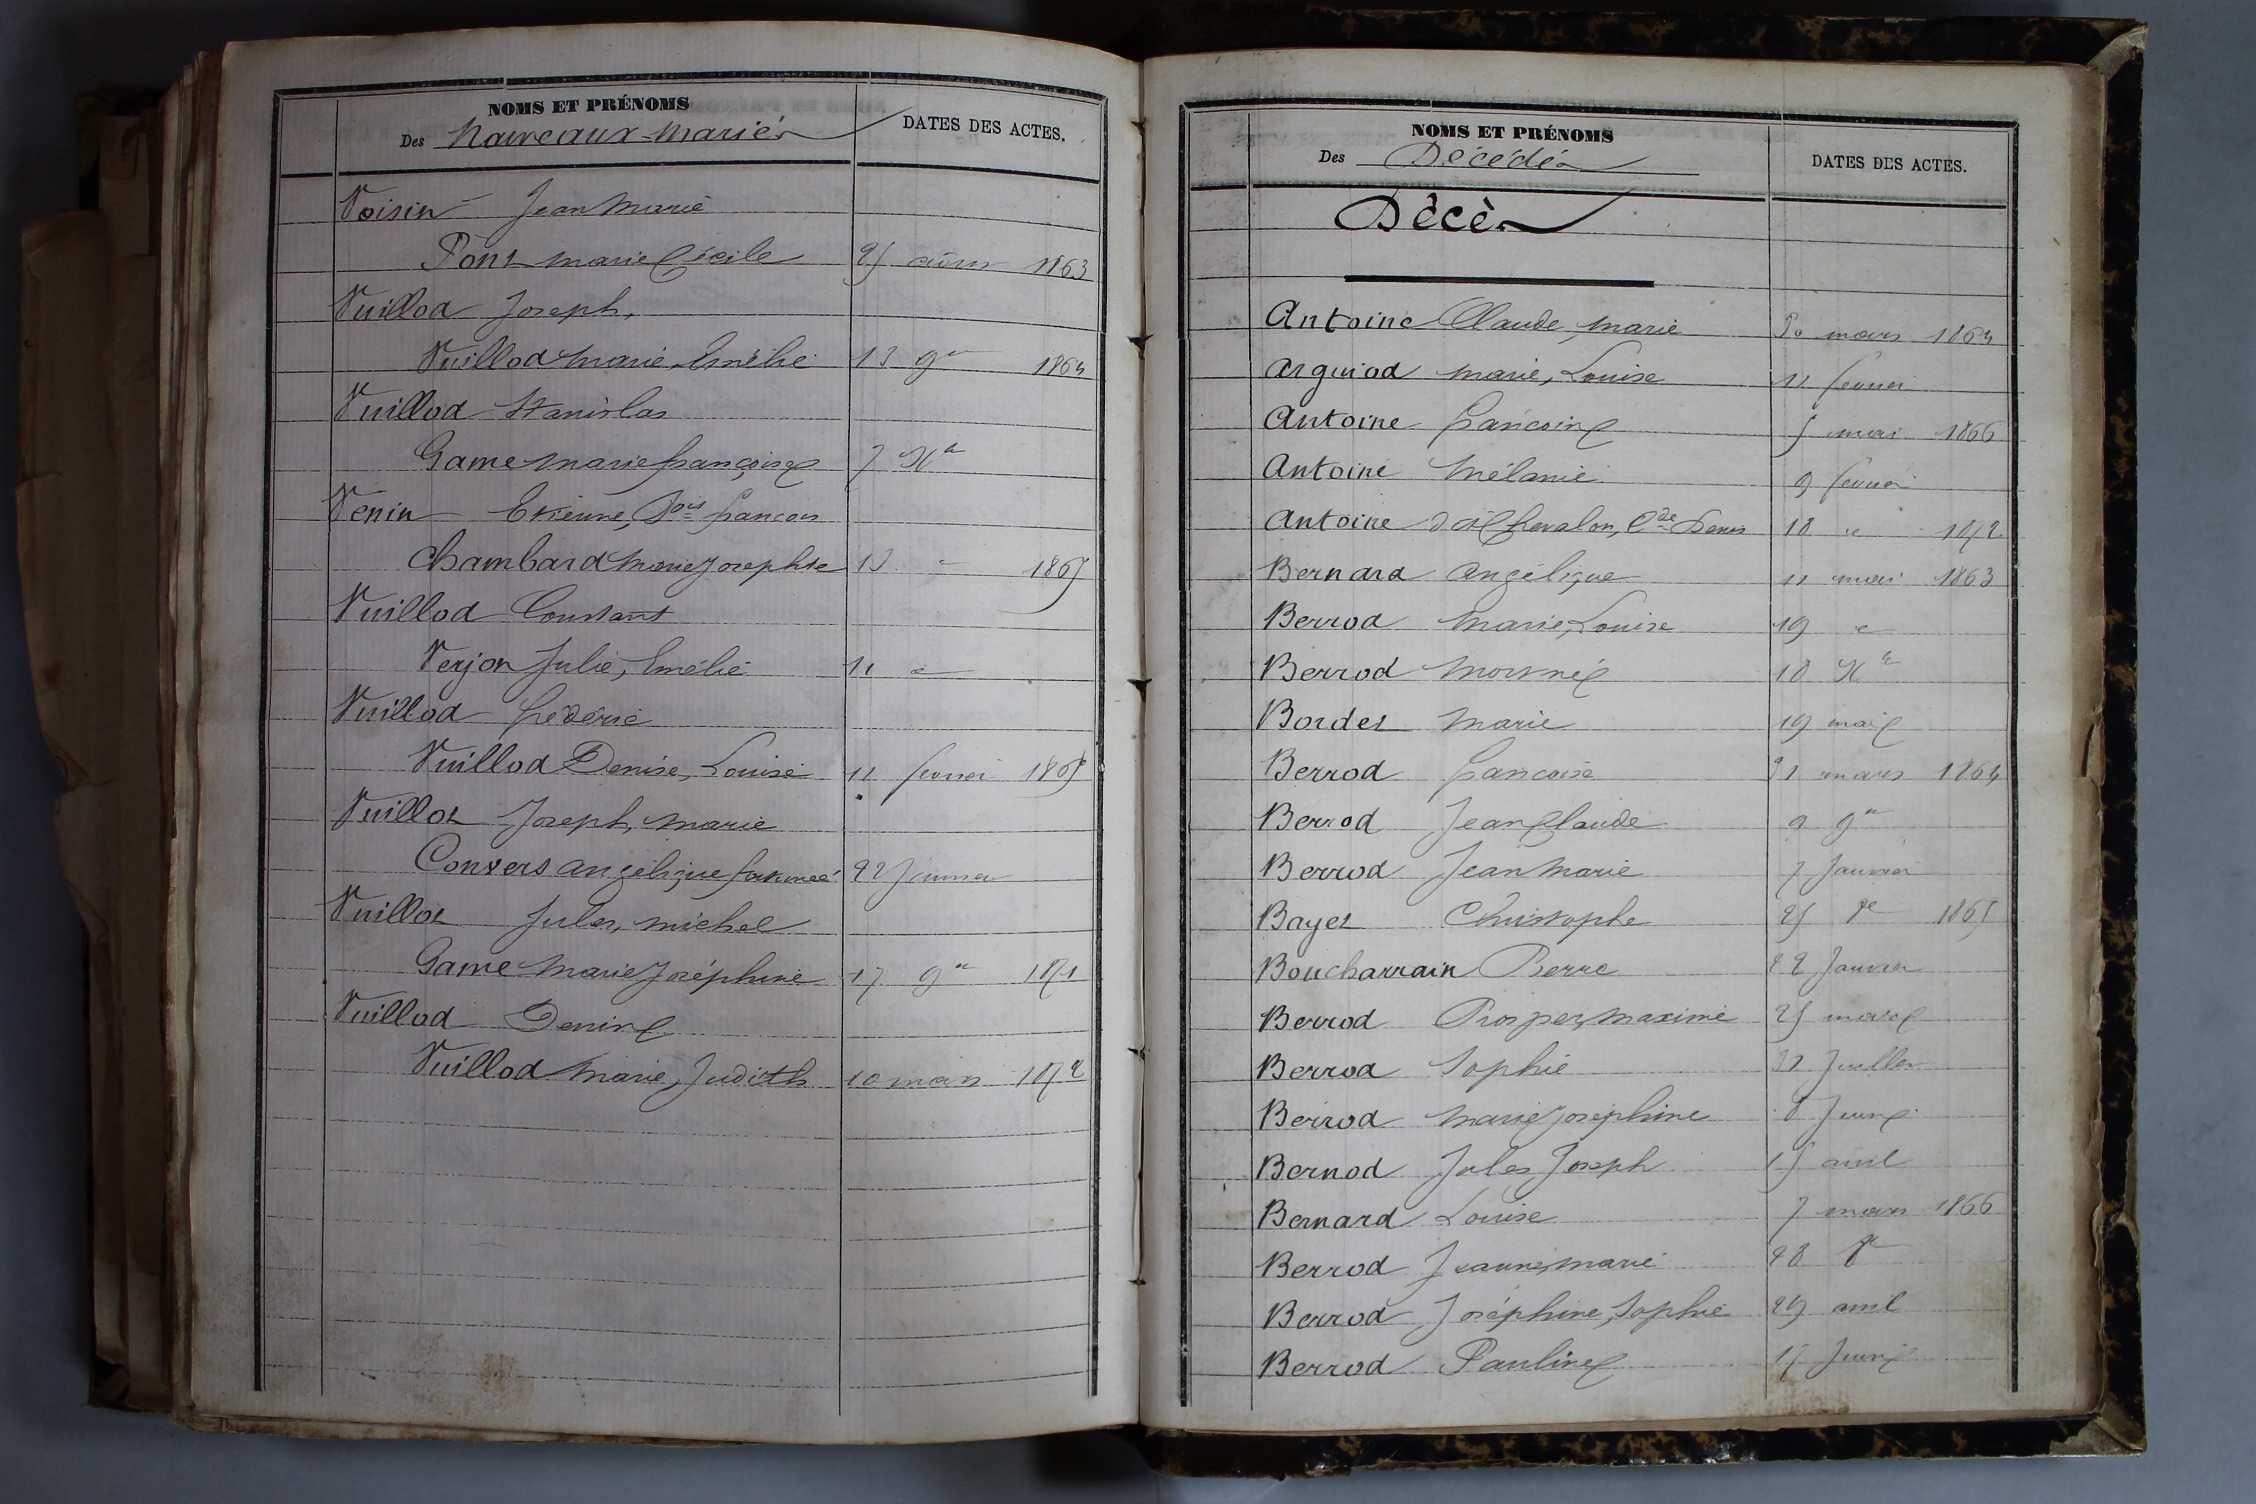 NOMS ET PRÉNOMS
Des Nouveaux-Mariés
DATES DES ACTES.
Voisin Jean Marie
Pont Marie Cécile 25 1863
Vuillod Joseph,
Vuillod Marie Emélie 13 9re 1864
Vuillod Stanislas
Game Marie françoise 7 Xre
Venin Etienne, françois
Chambard Marie Josephte 13 " 1867
Vuillod Constant
Verjon Julie, Emélie 11 "
Vuillod fréderic
Vuillod Denise, Louise 11 fevrier 1868
Vuillot Joseph, Marie
Convers Angelique fortunée 22 Janvier
Vuillot Jules, Michel
Game Marie Joséphine 17 9re 1871
Vuillod Denise
Vuillod Marie, Judith 10 mars 1872
NOMS ET PRÉNOMS
Des Décédés
DATES DES ACTES.
Décès
Antoine Claude, Marie mars 1864
Arguiod Marie, Louise 11 fevrier
Antoine françoise 5 mai 1866
Antoine Mélanie 9 fevrier
Antoine dit Chevalon, Cde Denis 18 " 1872
Bernard Angélique 11 mai 1863
Berrod Marie, Louise 19 "
Berrod Mort né 18 Xre
Bordet Marie 19 mai
Berrod françoise 31 mars 1864
Berrod Jean Claude 9 9re
Berrod Jean Marie 7 Janvier
Bayet Christophe 25 1865
Boucharrain Pierre 22 Janvier
Berrod Prosper, Maxime 25 mars
Berrod Sophie 31 Juillet
Berrod Marie Joséphine 8 Juin
Bernod Jules Joseph 15 avril
Bernard Louise 7 mars 1866
Berrod Jeanne, Marie 28
Berrod Joséphine, Sophie 29 avril
Berrod Pauline 17 Juin